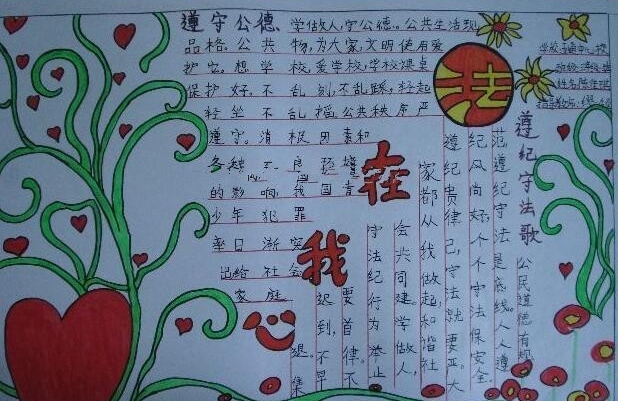 遵守公德 学做人,守公德。公共生活现
品格。公共物,为大家,文明使用爱
护它。想学校,爱学校,学校课桌
保护好。不乱刻,不乱踩,轻起
轻坐不乱摇。公共秩序严
遵守。消极因素和
各种不良环境
的影响,我国青
少年犯罪
率日渐突
出给社会
家庭
法
在
我
心
学校:
班级:
姓名:
指导教师:
遵纪守法歌
公民道德有规
范,遵纪守法是底线。人人遵
纪风尚好,个个守法保安全。
遵纪贵律己,守法就要严。大
家都从我做起,和谐社
会共同建。学做人,
守法纪,行为举止
要首律。不
迟到,不早
退。集